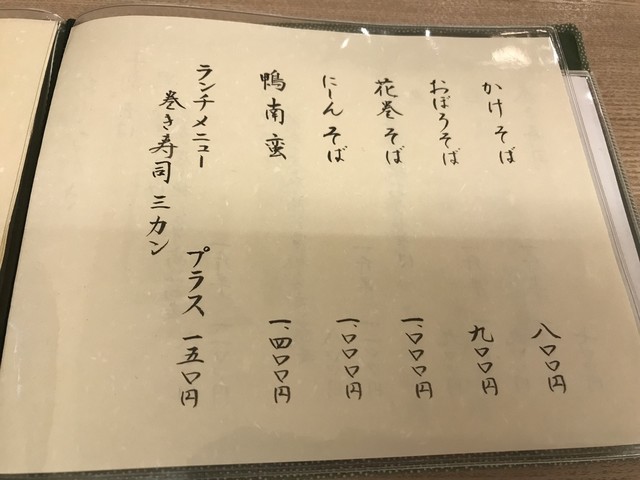 かけそば 八〇〇円
おぼろそば 九〇〇円
花巻そば 一、〇〇〇円
にしんそば 一、〇〇〇円
鴨南蛮 一、四〇〇円
ランチメニュー プラス 一五〇円
巻き寿司 三カン